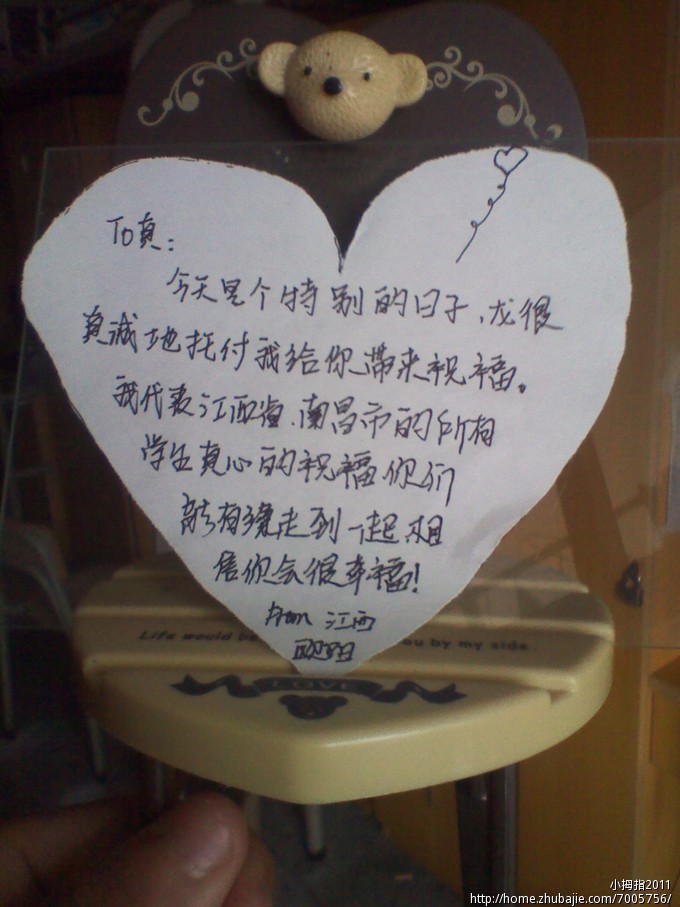 To真：
今天是个特别的日子，龙很
真诚地托付我给你带来祝福。
我代表江西省、南昌市的所有
学生真心的祝福你们
能有缘走到一起，相
信你会很幸福！
from 江西
Life would be
ou by my side.
LOVE
小拇指2011
http://home.zhubajie.com/7005756/